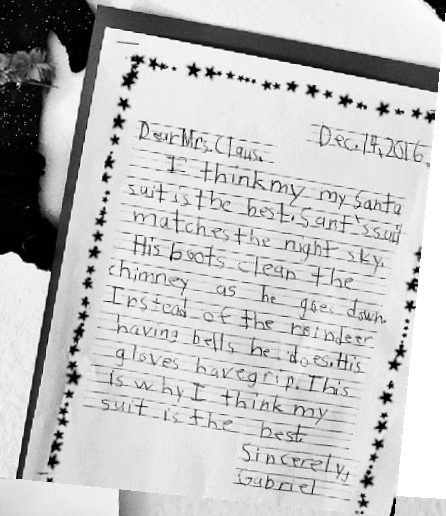 Dec. 14, 2016
Dear Mrs. Claus.
I think my my Santa
suit is the best. Sant's suit
matches the night sky.
His boots clean the
chimney as he goes down.
Instead of the reindeer
having bells he does. His
gloves have grip. This
is why I think my
suit is the best.
Sincerely,
Gabriel